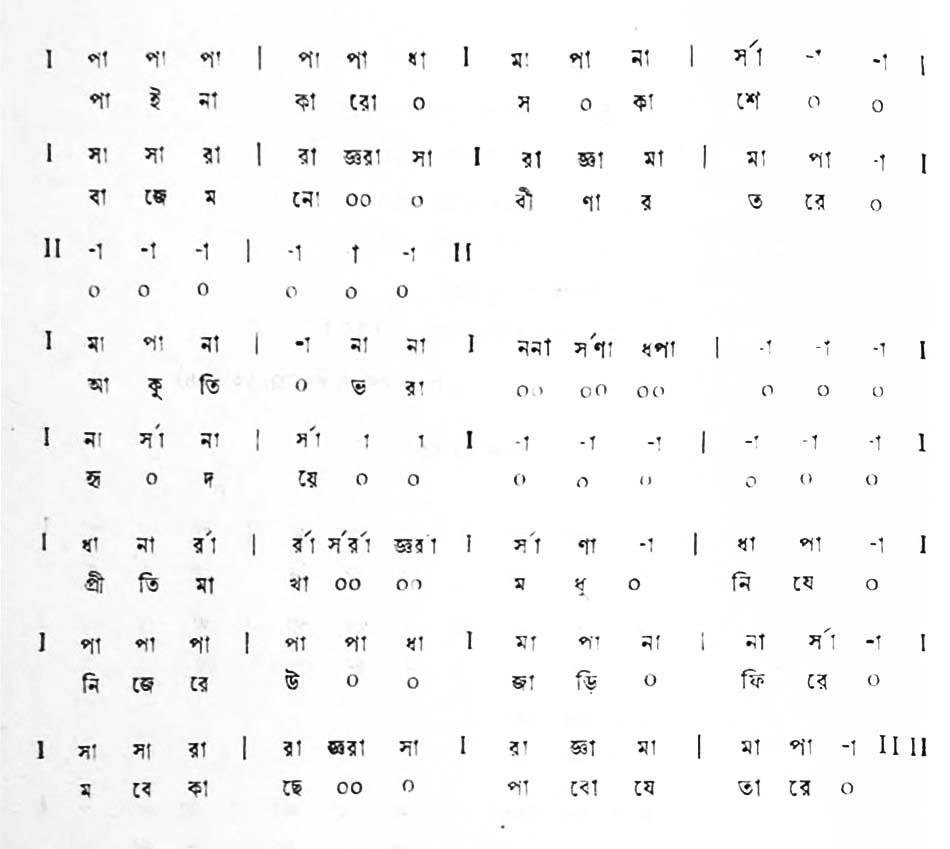 I পা পা পা | পা পা ধা I মা পা না | র্সা -া -া |
পা ই না কা রো ০ স ০ কা শে ০ ০
I সা সা রা | রা জ্ঞরা সা I রা জ্ঞা মা | মা পা -া I
বা জে ম নো ০০ ০ বী ণা র ত রে ০
II -া -া -া | -া া -া II
০ ০ ০ ০ ০ ০
I মা পা না | -া না না I ননা র্সণা ধপা | -া -া -া I
আ কু তি ০ ভ রা ০০ ০০ ০০ ০ ০ ০
I না র্সা না | র্সা া া I -া -া -া | -া -া -া I
হৃ ০ দ য়ে ০ ০ ০ ০ ০ ০ ০ ০
I ধা না র্রা | র্রা র্সর্রা জ্ঞর্রা I র্সা ণা -া | ধা পা -া I
প্রী তি মা খা ০০ ০০ ম ধু ০ নি যে ০
I পা পা পা | পা পা ধা I মা পা না | না র্সা -া I
নি জে রে উ ০ ০ জা ড়ি ০ ফি রে ০
I সা সা রা | রা জ্ঞরা সা I রা জ্ঞা মা | মা পা -া II II
ম বে কা ছে ০০ ০ পা বো যে তা রে ০